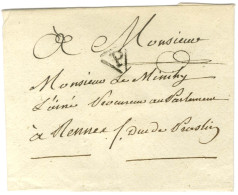 A Monsieur
Monsieur Le Minihy
L'ainé Procureur au Parlement
à Rennes